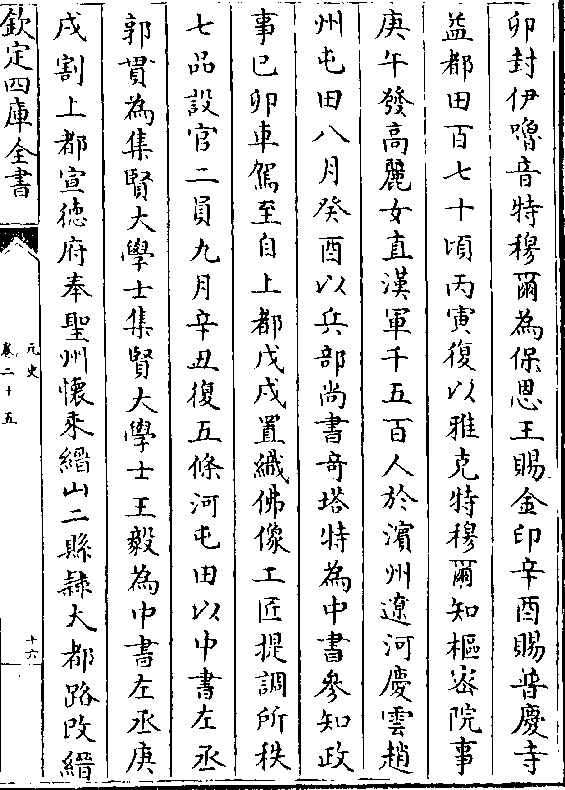 卯封伊嚕音特穆爾為保恩王賜金印辛酉賜普慶寺
益都田百七十頃丙寅復以雅克特穆爾知樞宻院事
庚午發髙麗女直漢軍千五百人於濵州遼河慶雲趙
州屯田八月癸酉以兵部尚書竒塔特為中書參知政
事已卯車駕至自上都戊戌置織佛像工匠提調所秩
七品設官二員九月辛丑復五條河屯田以中書左丞
郭貫為集賢大學士集賢大學士王毅為中書左丞庚
戌割上都宣徳府奉聖州懷来縉山二縣𨽻大都路改縉
欽定四庫全書
元史
卷二十五
十六